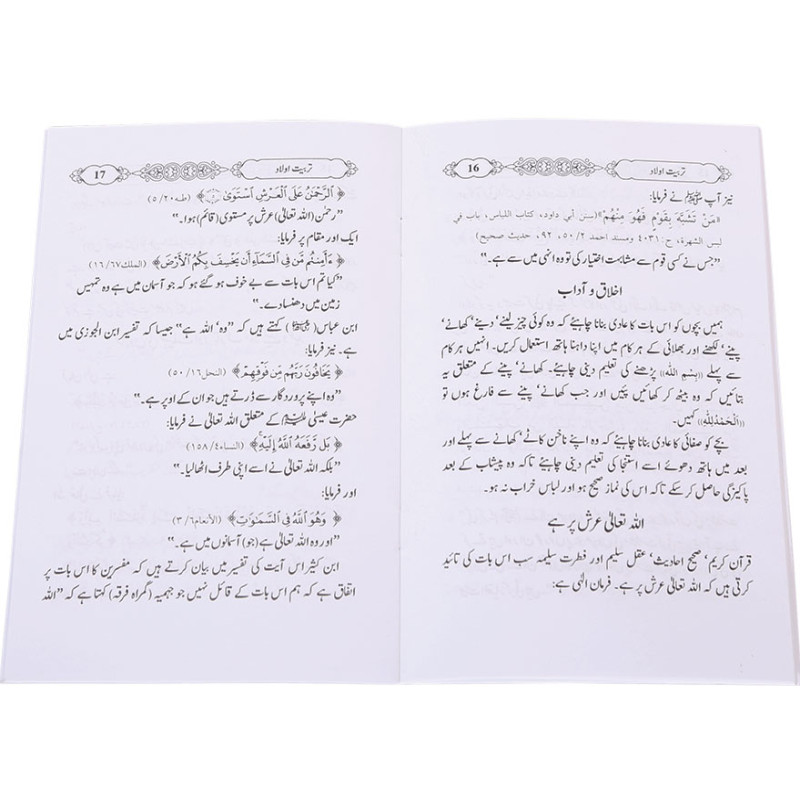 تربیت اولاد 16
نیز آپ ﷺ نے فرمایا:
«مَنْ تَشَبَّهَ بِقَوْمٍ فَهُوَ مِنْهُمْ»(سنن أبي داود، کتاب اللباس، باب في
لبس الشهرة، ح:٤٠٣١ ومسند احمد ٢/٥٠، ٩٢، حدیث صحیح)
”جس نے کسی قوم سے مشابہت اختیار کی تو وہ انہی میں سے ہے۔“
اخلاق و آداب
ہمیں بچوں کو اس بات کا عادی بنانا چاہیئے کہ وہ کوئی چیز لینے‘ دینے‘ کھانے‘
پینے‘ لکھنے اور بھلائی کے ہر کام میں اپنا داہنا ہاتھ استعمال کریں۔ انہیں ہر کام
سے پہلے «بِسْمِ اللہِ» پڑھنے کی تعلیم دینی چاہیئے۔ کھانے‘ پینے کے متعلق یہ
بتائیں کہ وہ بیٹھ کر کھائیں‘ پئیں اور جب کھانے‘ پینے سے فارغ ہوں تو
«اَلْحَمْدُلِلّٰہِ» کہیں۔
بچے کو صفائی کا عادی بنانا چاہیئے کہ وہ اپنے ناخن کاٹے‘ کھانے سے پہلے اور
بعد میں ہاتھ دھوئے‘ اسے استنجا کی تعلیم دینی چاہیئے تاکہ وہ پیشاب کے بعد
پاکیزگی حاصل کر سکے تاکہ اس کی نماز صحیح ہو اور لباس خراب نہ ہو۔
اللہ تعالیٰ عرش پر ہے
قرآن کریم‘ صحیح احادیث‘ عقل سلیم اور فطرت سلیمہ سب اس بات کی تائید
کرتی ہیں کہ اللہ تعالیٰ عرش پر ہے۔ فرمان الٰہی ہے:
تربیت اولاد 17
﴿ ٱلرَّحْمَٰنُ عَلَى ٱلْعَرْشِ ٱسْتَوَىٰ ﴾ (طه٢٠/٥)
”رحمٰن (اللہ تعالیٰ) عرش پر مستوی (قائم) ہوا۔“
ایک اور مقام پر فرمایا:
﴿ ءَأَمِنتُم مَّن فِى ٱلسَّمَآءِ أَن يَخْسِفَ بِكُمُ ٱلْأَرْضَ ﴾ (الملك٦٧/١٦)
”کیا تم اس بات سے بے خوف ہو گئے ہو کہ جو آسمان میں ہے وہ تمہیں
زمین میں دھنسا دے۔“
ابن عباس (رضی اللہ عنہما) کہتے ہیں کہ ”وہ‘ اللہ ہے“ جیسا کہ تفسیر ابن الجوزی میں
ہے۔ نیز فرمایا:
﴿ يَخَافُونَ رَبَّهُم مِّن فَوْقِهِمْ ﴾ (النحل١٦/٥٠)
”وہ اپنے پروردگار سے ڈرتے ہیں جو ان کے اوپر ہے۔“
حضرت عیسیٰ علیہ السلام کے متعلق اللہ تعالیٰ نے فرمایا:
﴿ بَل رَّفَعَهُ ٱللَّهُ إِلَيْهِ ﴾ (النساء٤/١٥٨)
”بلکہ اللہ تعالیٰ نے اسے اپنی طرف اٹھا لیا۔“
اور فرمایا:
﴿ وَهُوَ ٱللَّهُ فِى ٱلسَّمَٰوَٰتِ ﴾ (الأنعام٦/٣)
”اور وہ اللہ تعالیٰ ہی ہے (جو) آسمانوں میں ہے۔“
ابن کثیر اس آیت کی تفسیر میں بیان کرتے ہیں کہ مفسرین کا اس بات پر
اتفاق ہے کہ ہم اس بات کے قائل نہیں جو جہمیہ (گمراہ فرقہ) کہتا ہے کہ ”اللہ